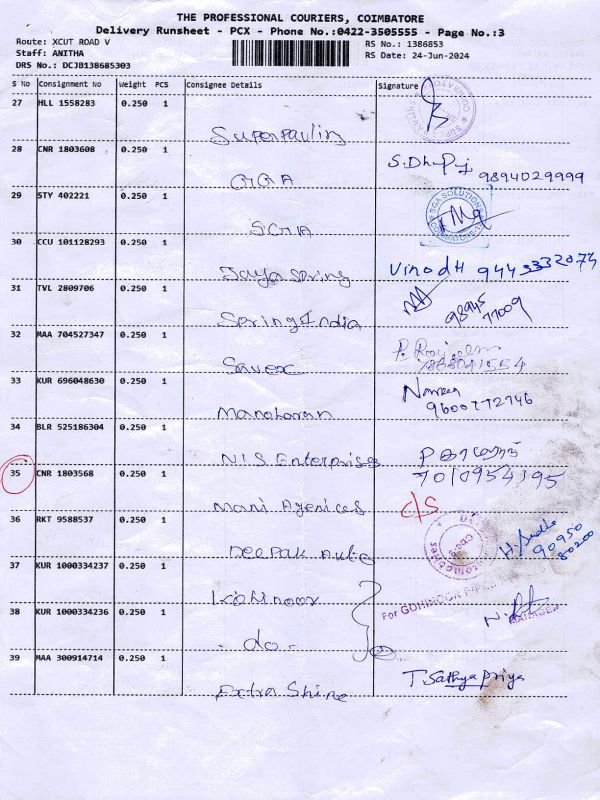 THE PROFESSIONAL COURIERS, COIMBATORE
Delivery Runsheet - PCX - Phone No.:0422-3505555 - Page No.:3
Route: XCUT ROAD V
RS No.: 1386853
Staff: ANITHA
RS Date: 24-Jun-2024
DRS No.: DCJB138685303
S No Consignment No Weight PCS Consignee Details Signature
27 HLL 1558283 0.250 1
Superpauling
28 CNR 1803608 0.250 1
GGA
S.Dhupj 9894029999
29 STY 402221 0.250 1
SGA
SGA SOLUTIONS
30 CCU 101128293 0.250 1
Jaya Spring
Vinodh 9443332074
31 TVL 2809706 0.250 1
Spring India
98945
77009
32 MAA 704527347 0.250 1
Savex
33 KUR 696048630 0.250 1
Manoharan
9600772946
34 BLR 525186304 0.250 1
N.I.S. Enterprises
7010954195
35 CNR 1803568 0.250 1
Mani Agenices
C/S
36 RKT 9588537 0.250 1
Deepak Auto
90950
80200
37 KUR 1000334237 0.250 1
Kohinoor
For GOHINOOR PIPE
38 KUR 1000334236 0.250 1
- do -
MANAGER
39 MAA 300914714 0.250 1
Extra Shine
T. Sathyapriya